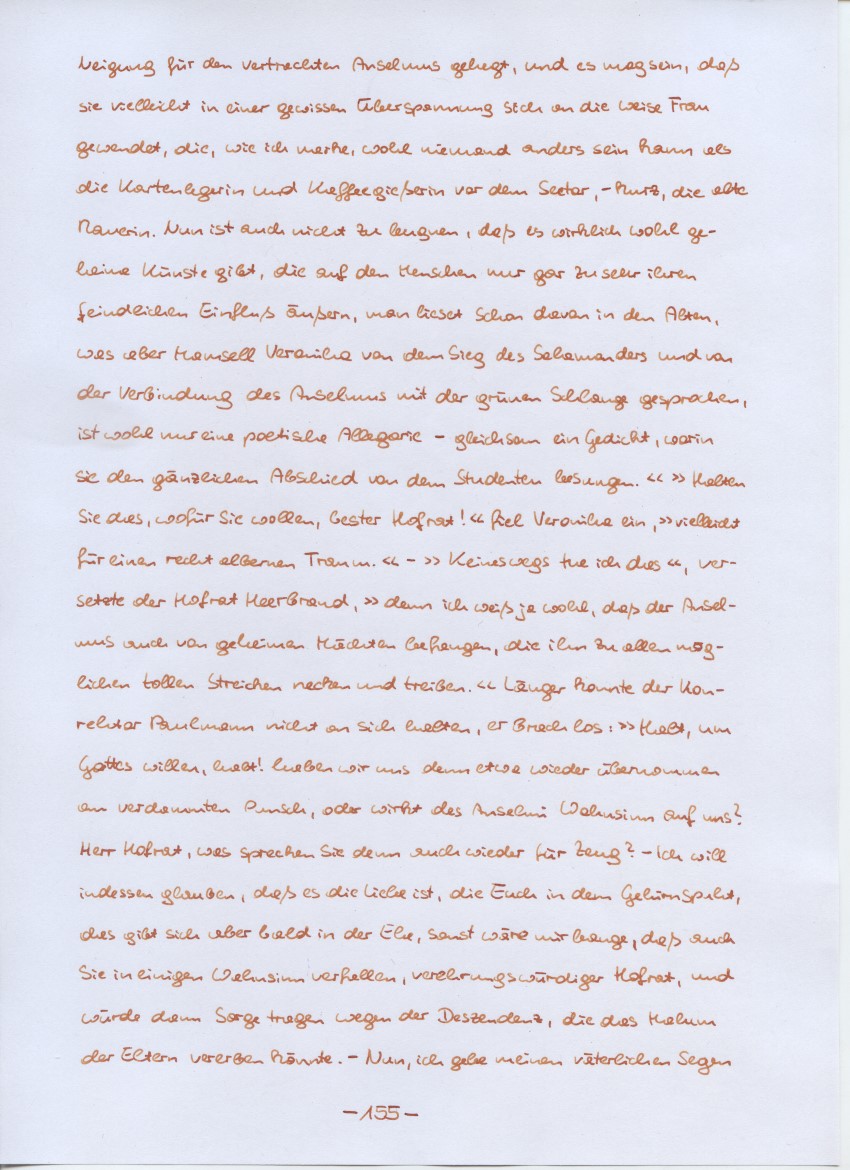 Neigung für den vertrackten Anselmus gehegt, und es mag sein, daß
sie vielleicht in einer gewissen Überspannung sich an die weise Frau
gewendet, die, wie ich merke, wohl niemand anders sein kann als
die Kartenlegerin und Kaffeegießerin vor dem Seetor, – kurz, die alte
Rauerin. Nun ist auch nicht zu leugnen, daß es wirklich wohl ge-
heime Künste gibt, die auf den Menschen nur gar zu sehr ihren
feindlichen Einfluß äußern, man lieset schon davon in den Alten,
was aber Mamsell Veronika von dem Sieg des Salamanders und von
der Verbindung des Anselmus mit der grünen Schlange gesprochen,
ist wohl nur eine poetische Allegorie – gleichsam ein Gedicht, worin
sie den gänzlichen Abschied von dem Studenten besungen.« »Halten
Sie das, wofür Sie wollen, bester Hofrat!« fiel Veronika ein, »vielleicht
für einen recht albernen Traum.« – »Keineswegs tue ich das«, ver-
setzte der Hofrat Heerbrand, »denn ich weiß ja wohl, daß der Ansel-
mus auch von geheimen Mächten befangen, die ihn zu allen mög-
lichen tollen Streichen necken und treiben.« Länger konnte der Kon-
rektor Paulmann nicht an sich halten, er brach los: »Halt, um
Gottes willen, halt! haben wir uns denn etwa wieder übernommen
am verdammten Punsch, oder wirkt des Anselmi Wahnsinn auf uns?
Herr Hofrat, was sprechen Sie denn auch wieder für Zeug? – Ich will
indessen glauben, daß es die Liebe ist, die Euch in dem Gehirn spukt,
das gibt sich aber bald in der Ehe, sonst wäre mir bange, daß auch
Sie in einigen Wahnsinn verfallen, verehrungswürdiger Hofrat, und
würde dann Sorge tragen wegen der Deszendenz, die das Malum
der Eltern vererben könnte. – Nun, ich gebe meinen väterlichen Segen
– 155 –